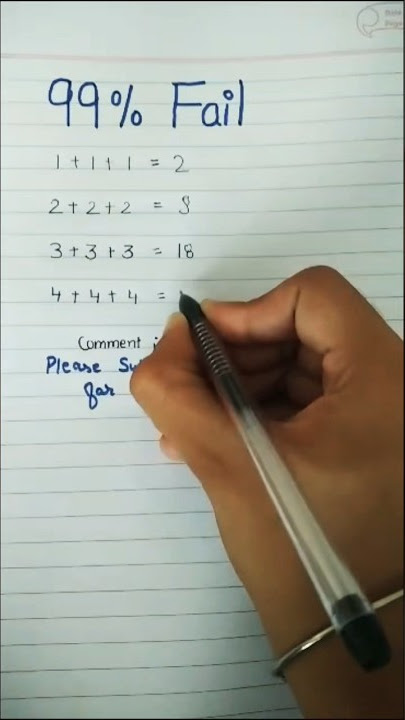 99% Fail
1 + 1 + 1 = 2
2 + 2 + 2 = 8
3 + 3 + 3 = 18
4 + 4 + 4 =
Comment
Please
for